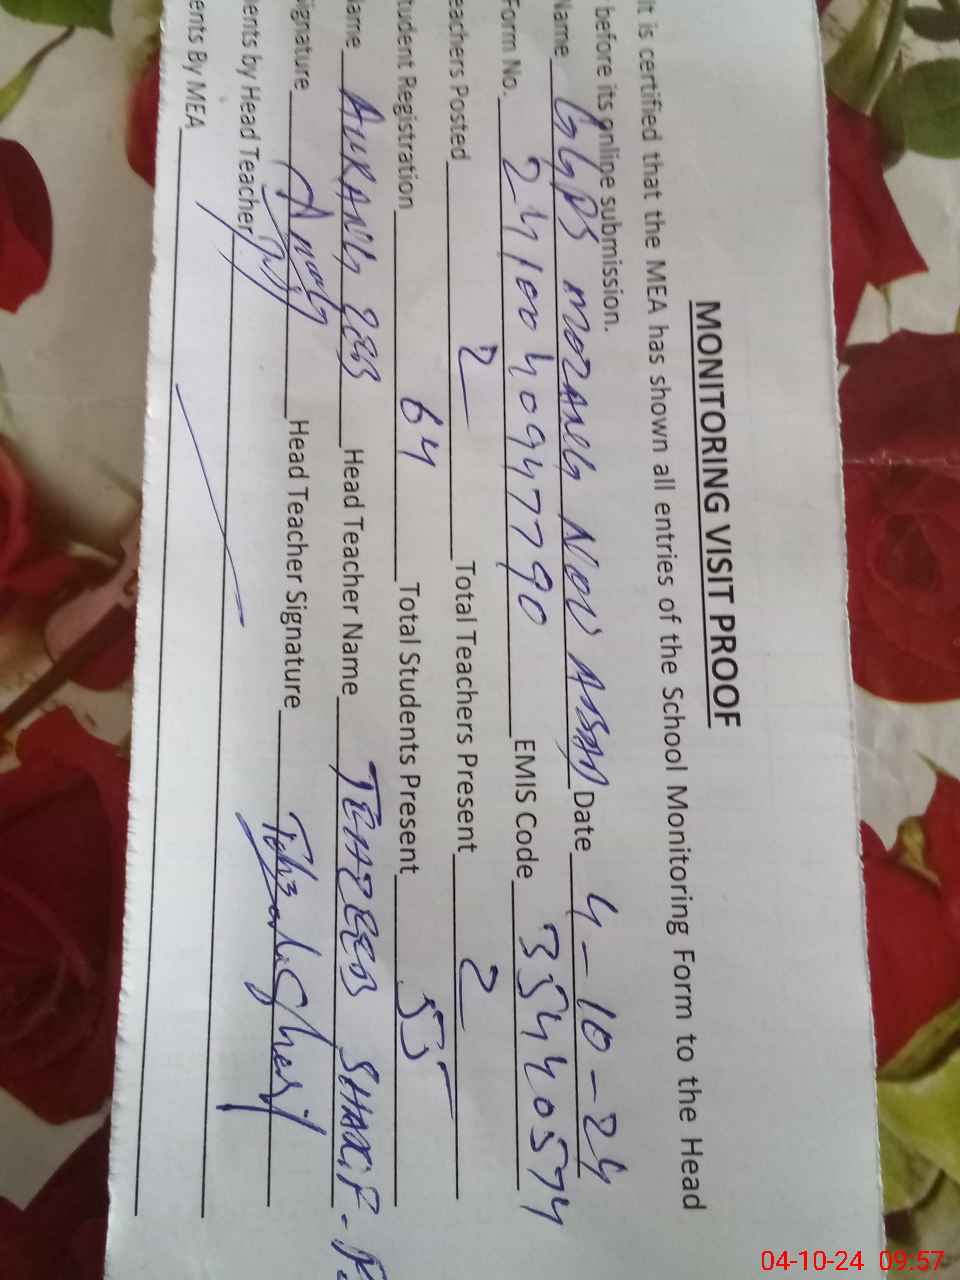 MONITORING VISIT PROOF
It is certified that the MEA has shown all entries of the School Monitoring Form to the Head
before its online submission.
Name GGPS MOZANG NOU ABAD Date 4-10-24
Form No. 2410040947790 EMIS Code 35440574
eachers Posted 2 Total Teachers Present 2
tudent Registration 64 Total Students Present 55
Name AURANG ZEB Head Teacher Name TEHZEEB SHARIF
ignature Head Teacher Signature
ents by Head Teacher
ents By MEA
04-10-24 09:57